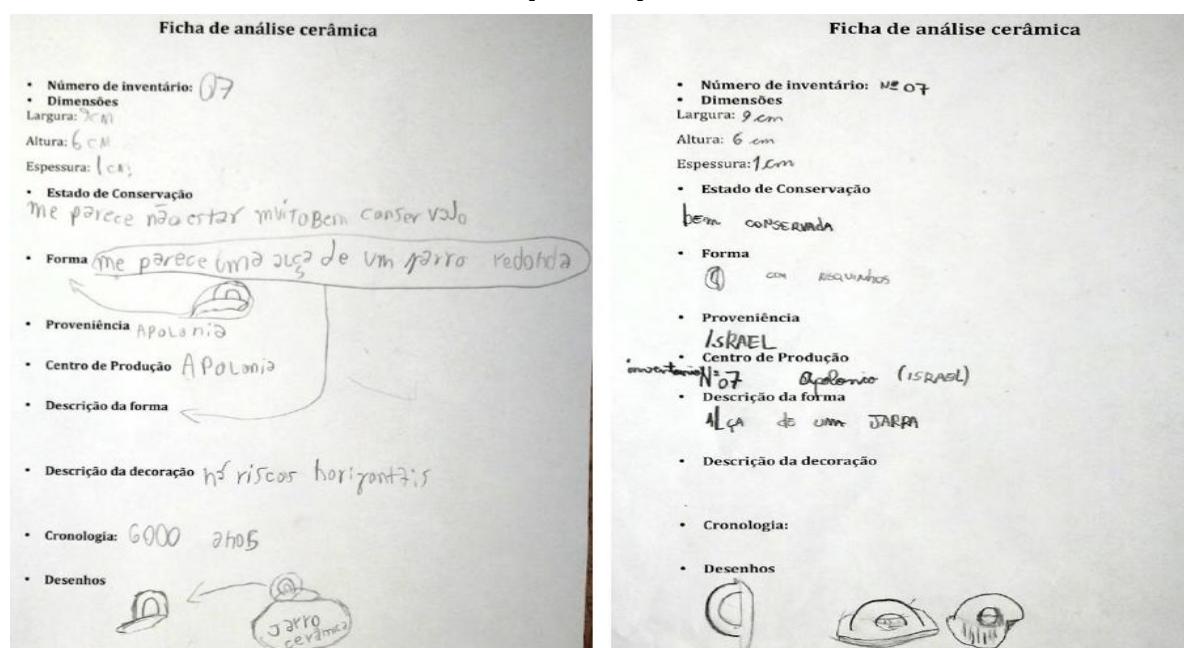 Ficha de análise cerâmica
• Número de inventário: 07
• Dimensões
Largura: 9 cm
Altura: 6 cm
Espessura: 1 cm
• Estado de Conservação
me parece não estar muito Bem conservado
• Forma me parece uma auça de um jarro redonda
• Proveniência APolonia
• Centro de Produção APolonia
• Descrição da forma
• Descrição da decoração há riscos horizontais
• Cronologia: 6000 anos
• Desenhos
Jarro
cerâmica
Ficha de análise cerâmica
• Número de inventário: Nº 07
• Dimensões
Largura: 9 cm
Altura: 6 cm
Espessura: 1 cm
• Estado de Conservação
bem CONSERVADA
• Forma
com RISQUINHOS
• Proveniência
ISRAEL
• Centro de Produção
inventario Nº 07 Apolonio (ISRAEL)
• Descrição da forma
ALÇA de uma JARRA
• Descrição da decoração
• Cronologia:
• Desenhos